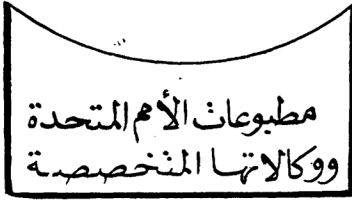 مطبوعات الأمم المتحدة
ووكالاتها المتخصصة